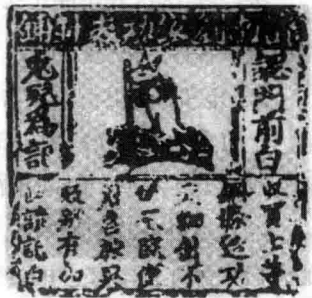 濟南劉家功夫針鋪
認門前白
兔兒為記
收買上等
鋼條造功
夫細針不
誤宅院使
用
販別有加
饒請記白